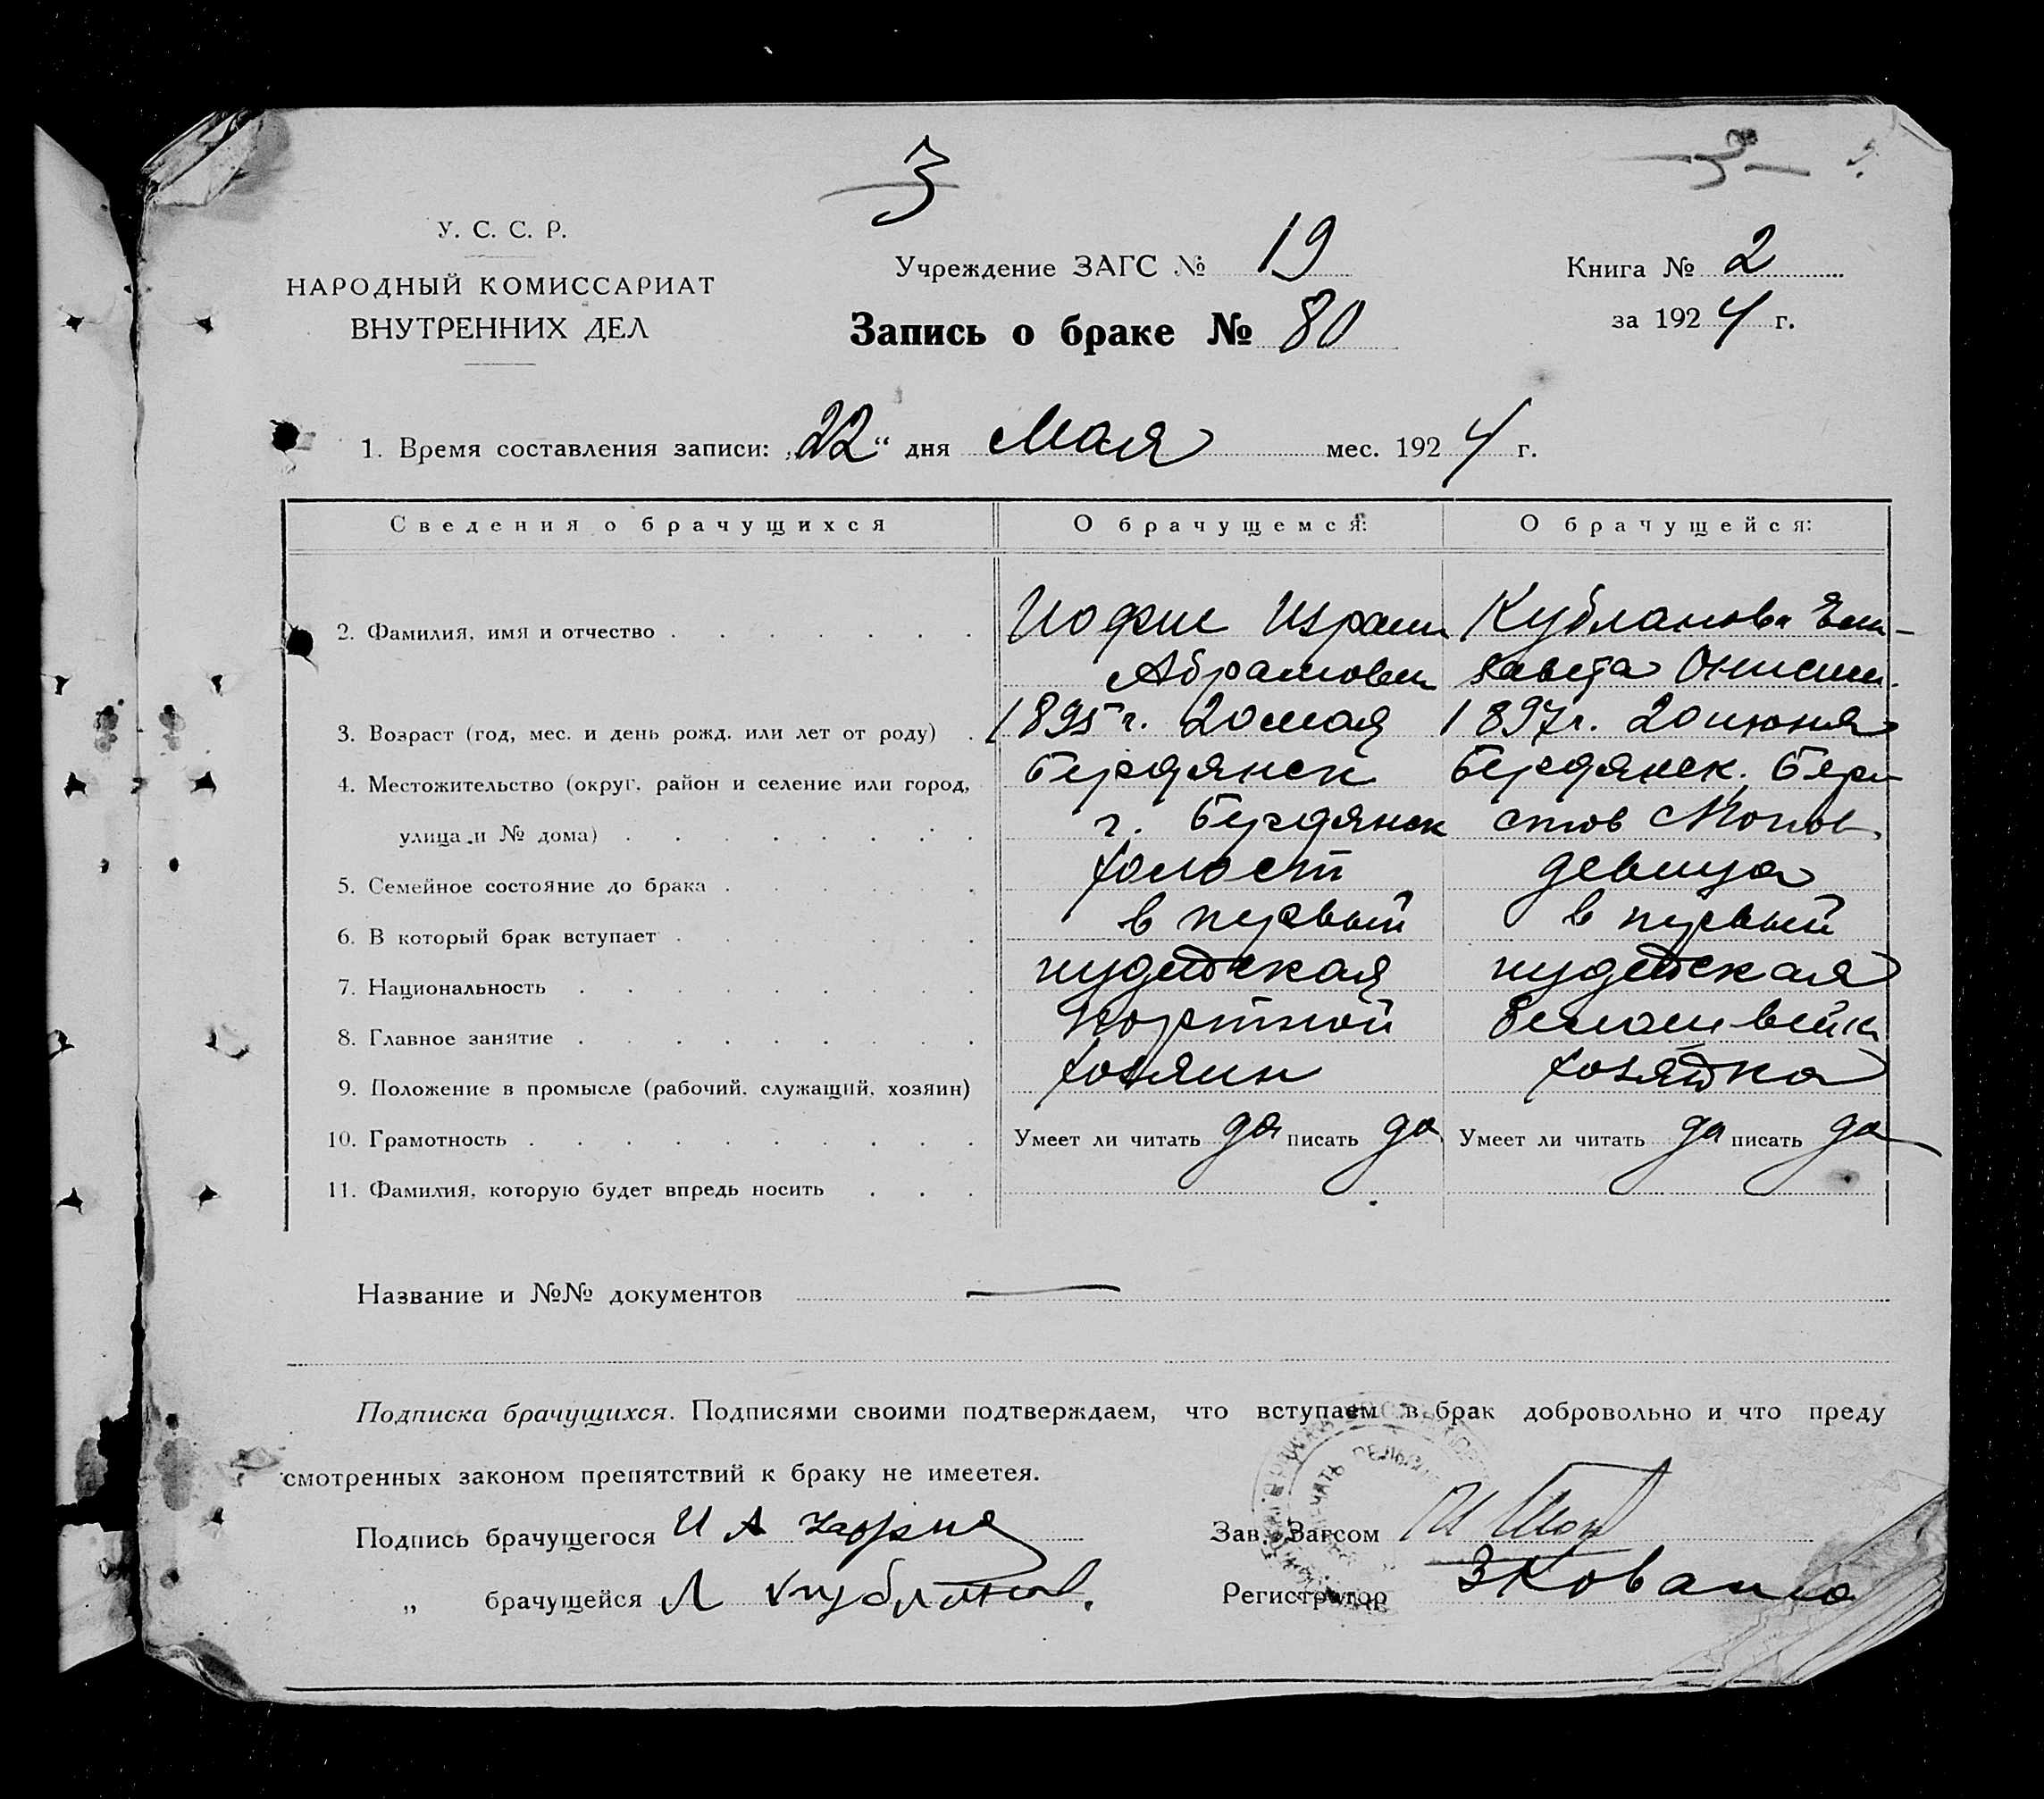 3
3
У. С. С. Р.
НАРОДНЫЙ КОМИССАРИАТ
ВНУТРЕННИХ ДЕЛ
Учреждение ЗАГС № 19
Книга № 2
Запись о браке № 80
за 1924 г.
1. Время составления записи: „22“ дня Мая мес. 1924 г.
Сведения о брачущихся О брачущемся: О брачущейся:
2. Фамилия, имя и отчество Иофис Израил Кубланова Ели-
Абрамович завета Онисим.
3. Возраст (год, мес. и день рожд. или лет от роду) 1895 г. 20 мая 1897 г. 20 июня
4. Местожительство (округ, район и селение или город, Бердянск Бердянск.
улица и № дома) г. Бердянск
5. Семейное состояние до брака холост девица
6. В который брак вступает в первый в первый
7. Национальность иудейская иудейская
8. Главное занятие Портной Белошвейка
9. Положение в промысле (рабочий, служащий, хозяин) хозяин хозяйка
10. Грамотность Умеет ли читать да писать да Умеет ли читать да писать да
11. Фамилия, которую будет впредь носить
Название и №№ документов —
Подписка брачущихся. Подписями своими подтверждаем, что вступаем в брак добровольно и что преду
смотренных законом препятствий к браку не имеетея.
Подпись брачущегося И А Зав. Загсом
„ брачущейся Л Кубланов. Регистратор ЗКовалио